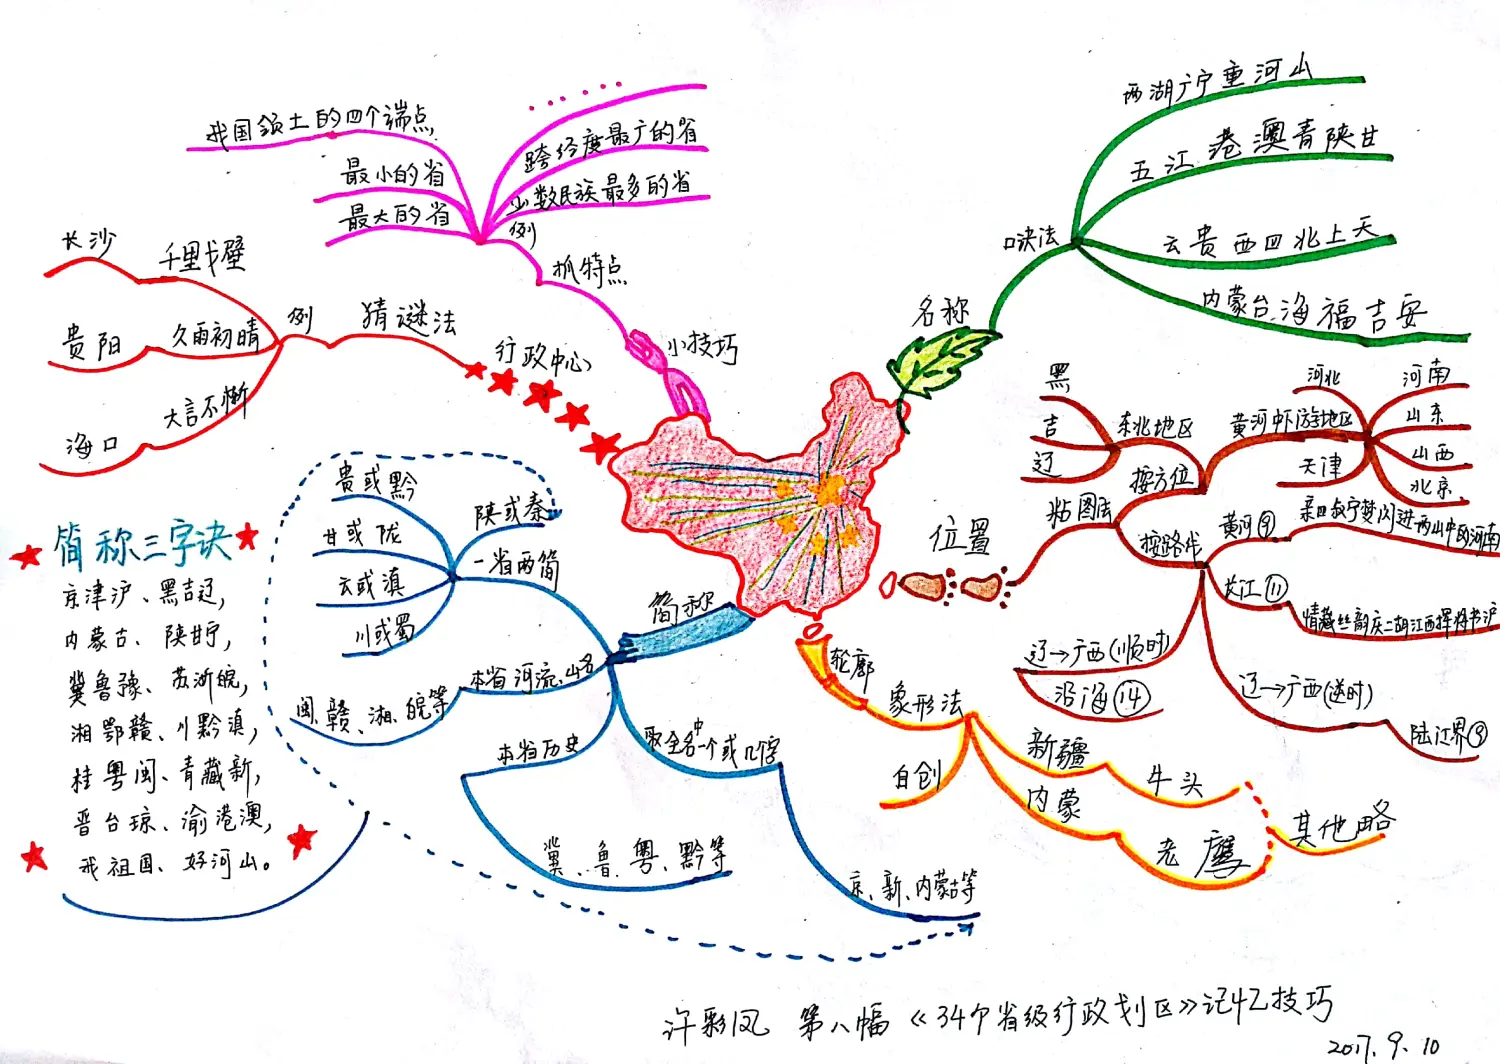 名称
口诀法
两湖广宁重河山
五江港澳青陕甘
云贵西四北上天
内蒙台海福吉安
位置
粘图法
按方位
东北地区
黑
吉
辽
黄河中下游地区
河北
天津
河南
山东
山西
北京
按路线
黄河⑨
长江⑪
辽→广西(顺时)
沿海⑭
辽→广西(逆时)
陆江界⑨
轮廓
象形法
自创
新疆
牛头
内蒙
老鹰
其他略
简称
一省两简
陕或秦
贵或黔
甘或陇
云或滇
川或蜀
本省河流、山名
闽、赣、湘、皖等
本省历史
冀、鲁、粤、黔等
取全名中一个或几字
京、新、内蒙古等
简称三字诀
京津沪、黑吉辽,
内蒙古、陕甘宁,
冀鲁豫、苏浙皖,
湘鄂赣、川黔滇,
桂粤闽、青藏新,
晋台琼、渝港澳,
我祖国、好河山。
行政中心
猜谜法
例
千里戈壁
长沙
久雨初晴
贵阳
大言不惭
海口
小技巧
抓特点
例
我国领土的四个端点
最小的省
最大的省
……
跨经度最广的省
少数民族最多的省
许彩凤 第八幅《34个省级行政划区》记忆技巧
2017.9.10